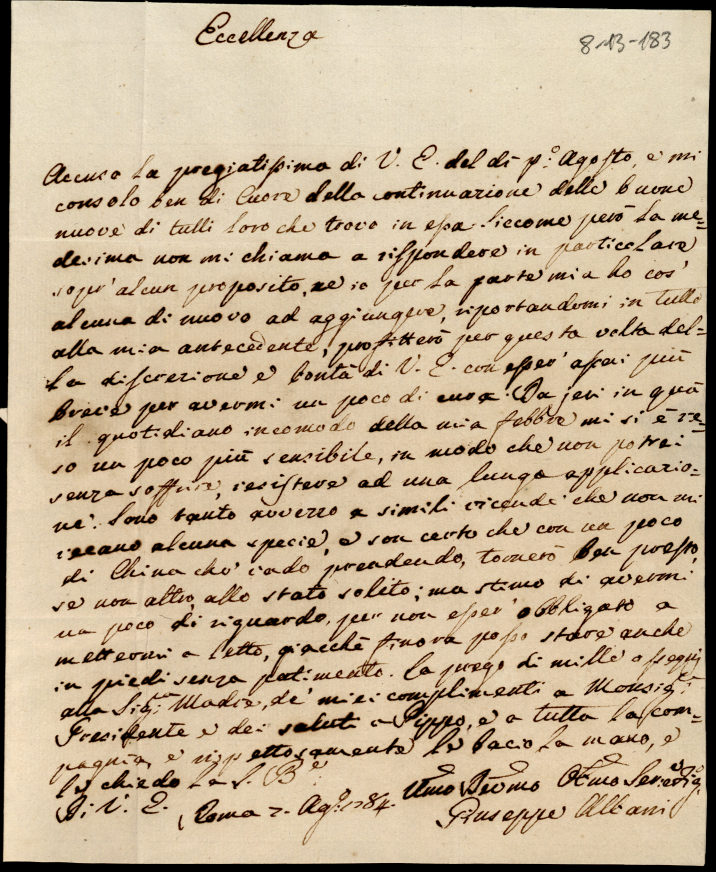 Eccellenza
8-13-183
Accuso la pregiatissima di V. E. del dì p.º Agosto, e mi
consolo ben di Cuore della continuazione delle buone
nuove di tutti loro che trovo in essa. Siccome però la me=
desima non mi chiama a rispondere in particolare
sopr' alcun proposito, ne io per la parte mia ho cos'
alcuna di nuovo ad aggiungere, riportandomi in tutto
alla mia antecedente, profitterò per questa volta del=
la discrezione e bontà di V. E. con esser' assai più
breve per avermi un poco di cura. Da jeri in quà
il quotidiano incomodo della mia febbre mi si è re=
so un poco più sensibile, in modo che non potrei
senza soffrir, resistere ad una lunga applicazio=
ne. Sono tanto avvezzo a simili vicende che non mi
recano alcuna specie, e son certo che con un poco
di China che vado prendendo, tornerò ben presto,
se non altro, allo stato solito; ma stimo di avermi
un poco di riguardo, per non esser' obbligato a
mettermi a letto, giacchè finora posso stare anche
in piedi senza patimento. La prego di mille ossequj
alla Sig.ra Madre, de' miei complimenti a Monsig.r
Presidente e dei saluti a Pippo, e a tutta la com=
pagnia, e rispettosamente le bacio la mano, e
le chiedo la S. B.e
Di V. E. Roma 7. Ag.º 1784. Umo Devmo Obmo
Giuseppe Albani